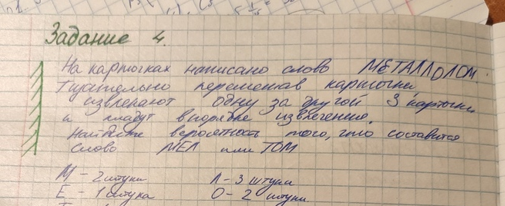 Задание 4.
На карточках написано слово МЕТАЛЛОЛОМ.
Тщательно перемешав карточки
извлекают одну за другой 3 карточки
и кладут в порядке извлечения.
Найдите вероятность того, что составится
слово МЕЛ или ТОМ
М - 2 штуки Л - 3 штуки
Е - 1 штука О - 2 штуки